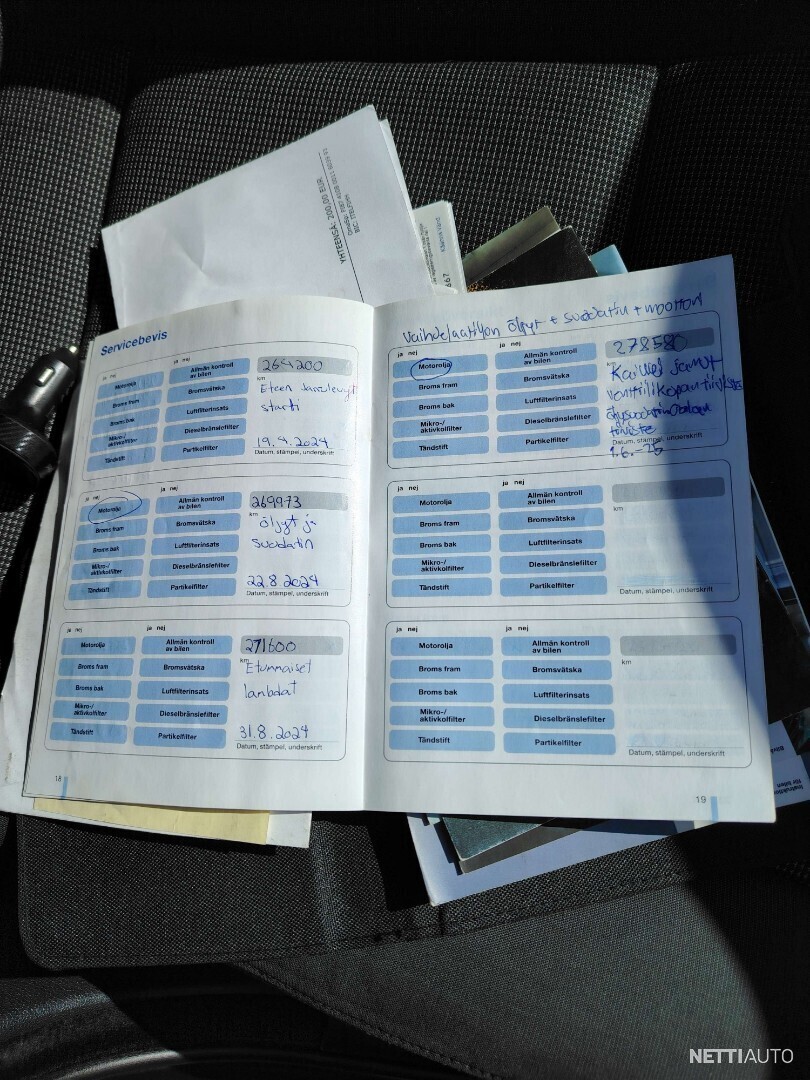 YHTEENSÄ: 200,00 EUR
Servicebevis
ja nej
ja nej
Motorolja
Broms fram
Broms bak
Mikro-/
aktivkolfilter
Tändstift
Allmän kontroll
av bilen
Bromsvätska
Luftfilterinsats
Dieselbränslefilter
Partikelfilter
264200
km
Eteen Jarrulevyt
19.4.2024
Datum, stämpel, underskrift
ja nej
Motorolja
Broms fram
Broms bak
Mikro-/
aktivkolfilter
Tändstift
ja nej
Allmän kontroll
av bilen
Bromsvätska
Luftfilterinsats
Dieselbränslefilter
Partikelfilter
269973
km
öljyt ja
suodatin
22.8.2024
Datum, stämpel, underskrift
ja nej
Motorolja
Broms fram
Broms bak
Mikro-/
aktivkolfilter
Tändstift
ja nej
Allmän kontroll
av bilen
Bromsvätska
Luftfilterinsats
Dieselbränslefilter
Partikelfilter
271600
km
Etummaiset
lambdat
31.8.2024
Datum, stämpel, underskrift
18
Vaihdelaatikon öljyt + suodatin + moottori
ja nej
Motorolja
Broms fram
Broms bak
Mikro-/
aktivkolfilter
Tändstift
ja nej
Allmän kontroll
av bilen
Bromsvätska
Luftfilterinsats
Dieselbränslefilter
Partikelfilter
278580
km
tiiviste
Datum, stämpel, underskrift
1.6.-25
ja nej
Motorolja
Broms fram
Broms bak
Mikro-/
aktivkolfilter
Tändstift
ja nej
Allmän kontroll
av bilen
Bromsvätska
Luftfilterinsats
Dieselbränslefilter
Partikelfilter
km
Datum, stämpel, underskrift
ja nej
Motorolja
Broms fram
Broms bak
Mikro-/
aktivkolfilter
Tändstift
ja nej
Allmän kontroll
av bilen
Bromsvätska
Luftfilterinsats
Dieselbränslefilter
Partikelfilter
km
Datum, stämpel, underskrift
19
NETTIAUTO